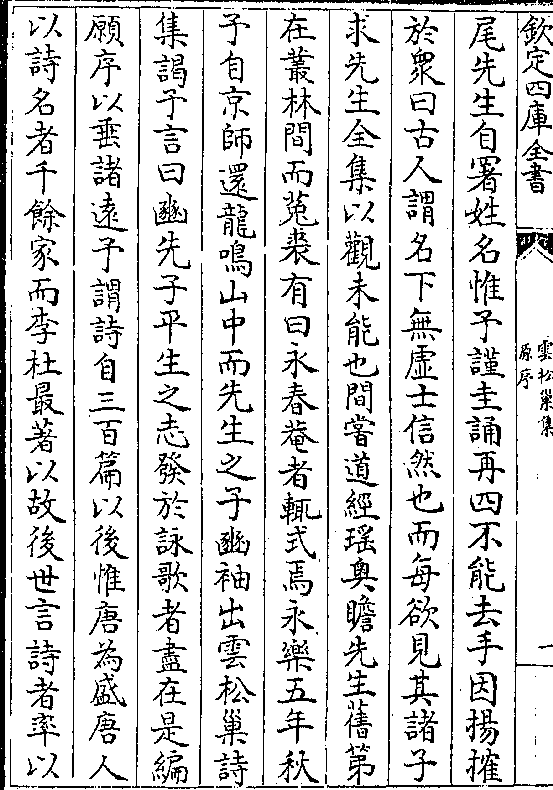 欽定四庫全書
雲松巢集
原序
一
尾先生自署姓名惟予謹圭誦再四不能去手因揚搉
於衆曰古人謂名下無虛士信然也而每欲見其諸子
求先生全集以觀未能也間嘗道經瑶奥瞻先生舊第
在叢林間而菟裘有曰永春菴者輒式焉永樂五年秋
予自京師還龍鳴山中而先生之子豳袖出雲松巢詩
集謁予言曰豳先子平生之志發於詠歌者盡在是編
願序以垂諸逺予謂詩自三百篇以後惟唐為盛唐人
以詩名者千餘家而李杜最著以故後世言詩者率以